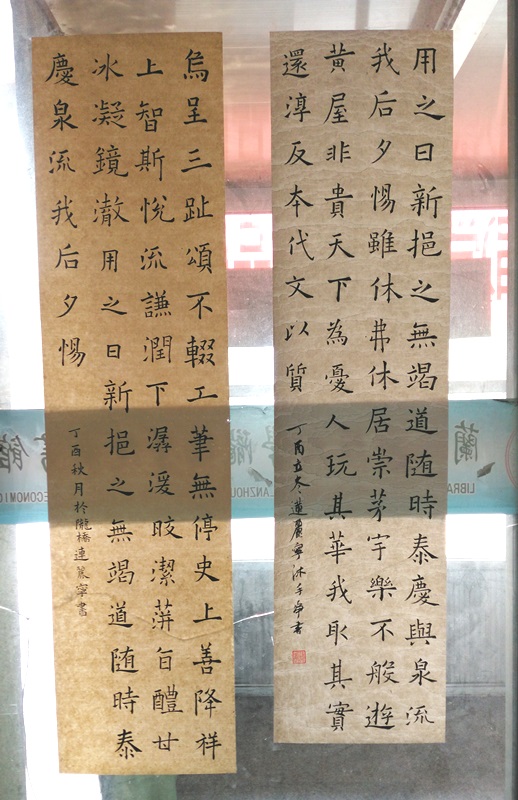 用之日新挹之無竭道随時泰慶與泉流
我后夕惕雖休弗休居崇茅宇樂不般遊
黃屋非貴天下為憂人玩其華我取其實
還淳反本代文以質
丁酉立冬寧沐手书
烏呈三趾頌不輟工筆無停史上善降祥
上智斯悅流謙潤下潺湲皎潔蓱旨醴甘
冰凝鏡澈用之日新挹之無竭道随時泰
慶泉流我后夕惕
丁酉秋月於隴橋連寧書
蘭
館
LIBRA
LANZHOU
ECONOMI